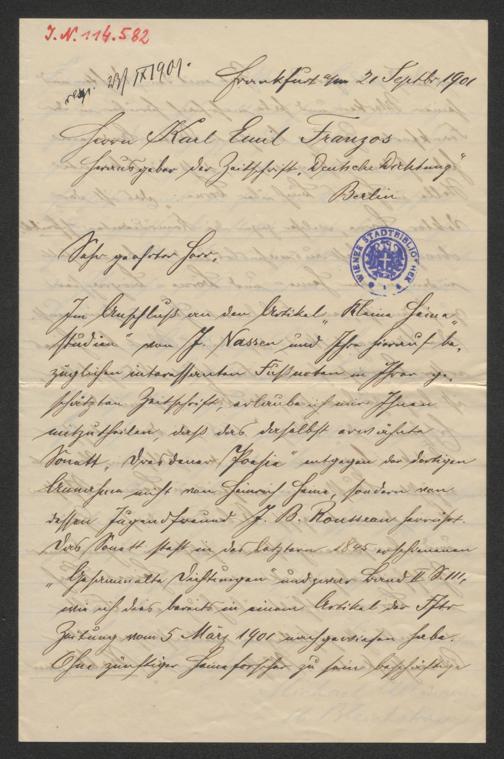 J.N. 114.582
resp. 23/IX 1901.
Frankfurt a/m 21 Septbr. 1901
Herrn Karl Emil Franzos
Herausgeber der Zeitschrift „Deutsche Dichtung"
Berlin
WIENER STADTBIBLIOTHEK
Sehr geehrter Herr,
Im Anschluß an den Artikel „Kleine Heine-
studien" von J. Nassen und Ihre hierauf be-
züglichen interessanten Fußnoten in Ihrer ge-
schätzten Zeitschrift, erlaube ich mir Ihnen
mitzutheilen, daß das daselbst erwähnte
Sonett, „Dresdener Poesie" entgegen der dortigen
Annahme nicht von Heinrich Heine, sondern von
dessen Jugendfreund J. B. Rousseau herrührt.
Das Sonett steht in des letztern 1845 erschienenen
„Gesammelte Dichtungen" und zwar Band II S. 111,
wie ich dies bereits in einem Artikel der Fftr
Zeitung vom 5 März 1901 nachgewiesen habe.
Ohne zünftiger Heineforscher zu sein beschäftige